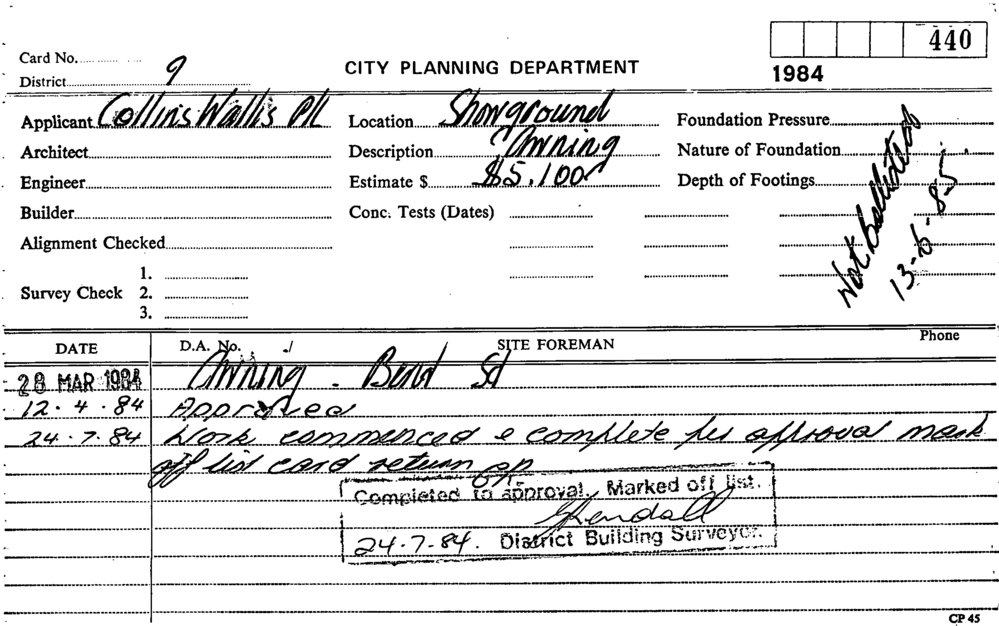 440
Card No.
CITY PLANNING DEPARTMENT
1984
District 9
Applicant Collins Wallis P/L
Location Showground
Foundation Pressure
Architect
Description Awning
Nature of Foundation
Engineer
Estimate $ $5,100
Depth of Footings
Builder
Conc. Tests (Dates)
Not
13-6-85
Alignment Checked
1.
Survey Check 2.
3.
DATE
D.A. No.
SITE FOREMAN
Phone
28 MAR 1984 Awning - Bend St
12.4.84 Approved
24.7.84 Work commenced & complete per approval mark
off list card return
Completed to approval. Marked off list.
Kendall
24-7-84. District Building Surveyor.
CP 45